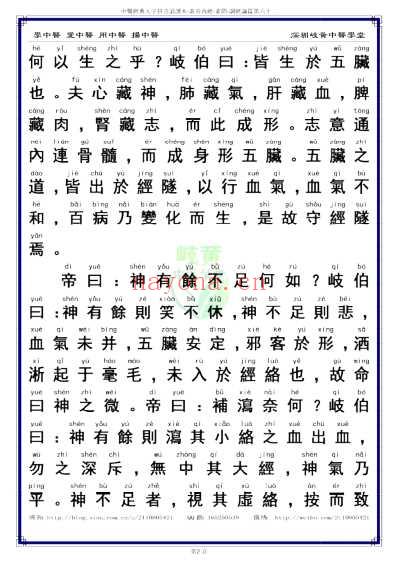 學中醫 愛中醫 用中醫 揚中醫
hé yǐ shēng zhī hū qí bó yuē jiē shēng yú wǔ zàng
何以生之乎？岐伯曰：皆生於五臟
yě fú xīn cáng shén fèi cáng qì gān cáng xuè pí
也。夫心藏神，肺藏氣，肝藏血，脾
cáng ròu shèn cáng zhì ér cǐ chéng xíng zhì yì tōng
藏肉，腎藏志，而此成形。志意通
nèi lián gǔ suǐ ér chéng shēn xíng wǔ zàng wǔ zàng zhī
內連骨髓，而成身形五臟。五臟之
dào jiē chū yú jīng suì yǐ xíng xuè qì xuè qì bù
道，皆出於經隧，以行血氣，血氣不
hé bǎi bìng nǎi biàn huà ér shēng shì gù shǒu jīng suì
和，百病乃變化而生，是故守經隧
yān
焉。
dì yuē shén yǒu yú bù zú hé rú qí bó
帝曰：神有餘不足何如？岐伯
yuē shén yǒu yú zé xiào bù xiū shén bù zú zé bēi
曰：神有餘則笑不休，神不足則悲，
xuè qì wèi bìng wǔ zàng ān dìng xié kè yú xíng sǎ
血氣未并，五臟安定，邪客於形，洒
xī qǐ yú háo máo wèi rù yú jīng luò yě gù mìng
淅起于毫毛，未入於經絡也，故命
yuē shén zhī wēi dì yuē bǔ xiè nài hé qí bó
曰神之微。帝曰：補瀉奈何？岐伯
yuē shén yǒu yú zé xiè qí xiǎo luò zhī xuè chū xuè
曰：神有餘則瀉其小絡之血出血，
wù zhī shēn chì wú zhòng qí dà jīng shén qì nǎi
勿之深斥，無中其大經，神氣乃
píng shén bù zú zhě shì qí xū luò àn ér zhì
平。神不足者，視其虛絡，按而致
nayona.cn